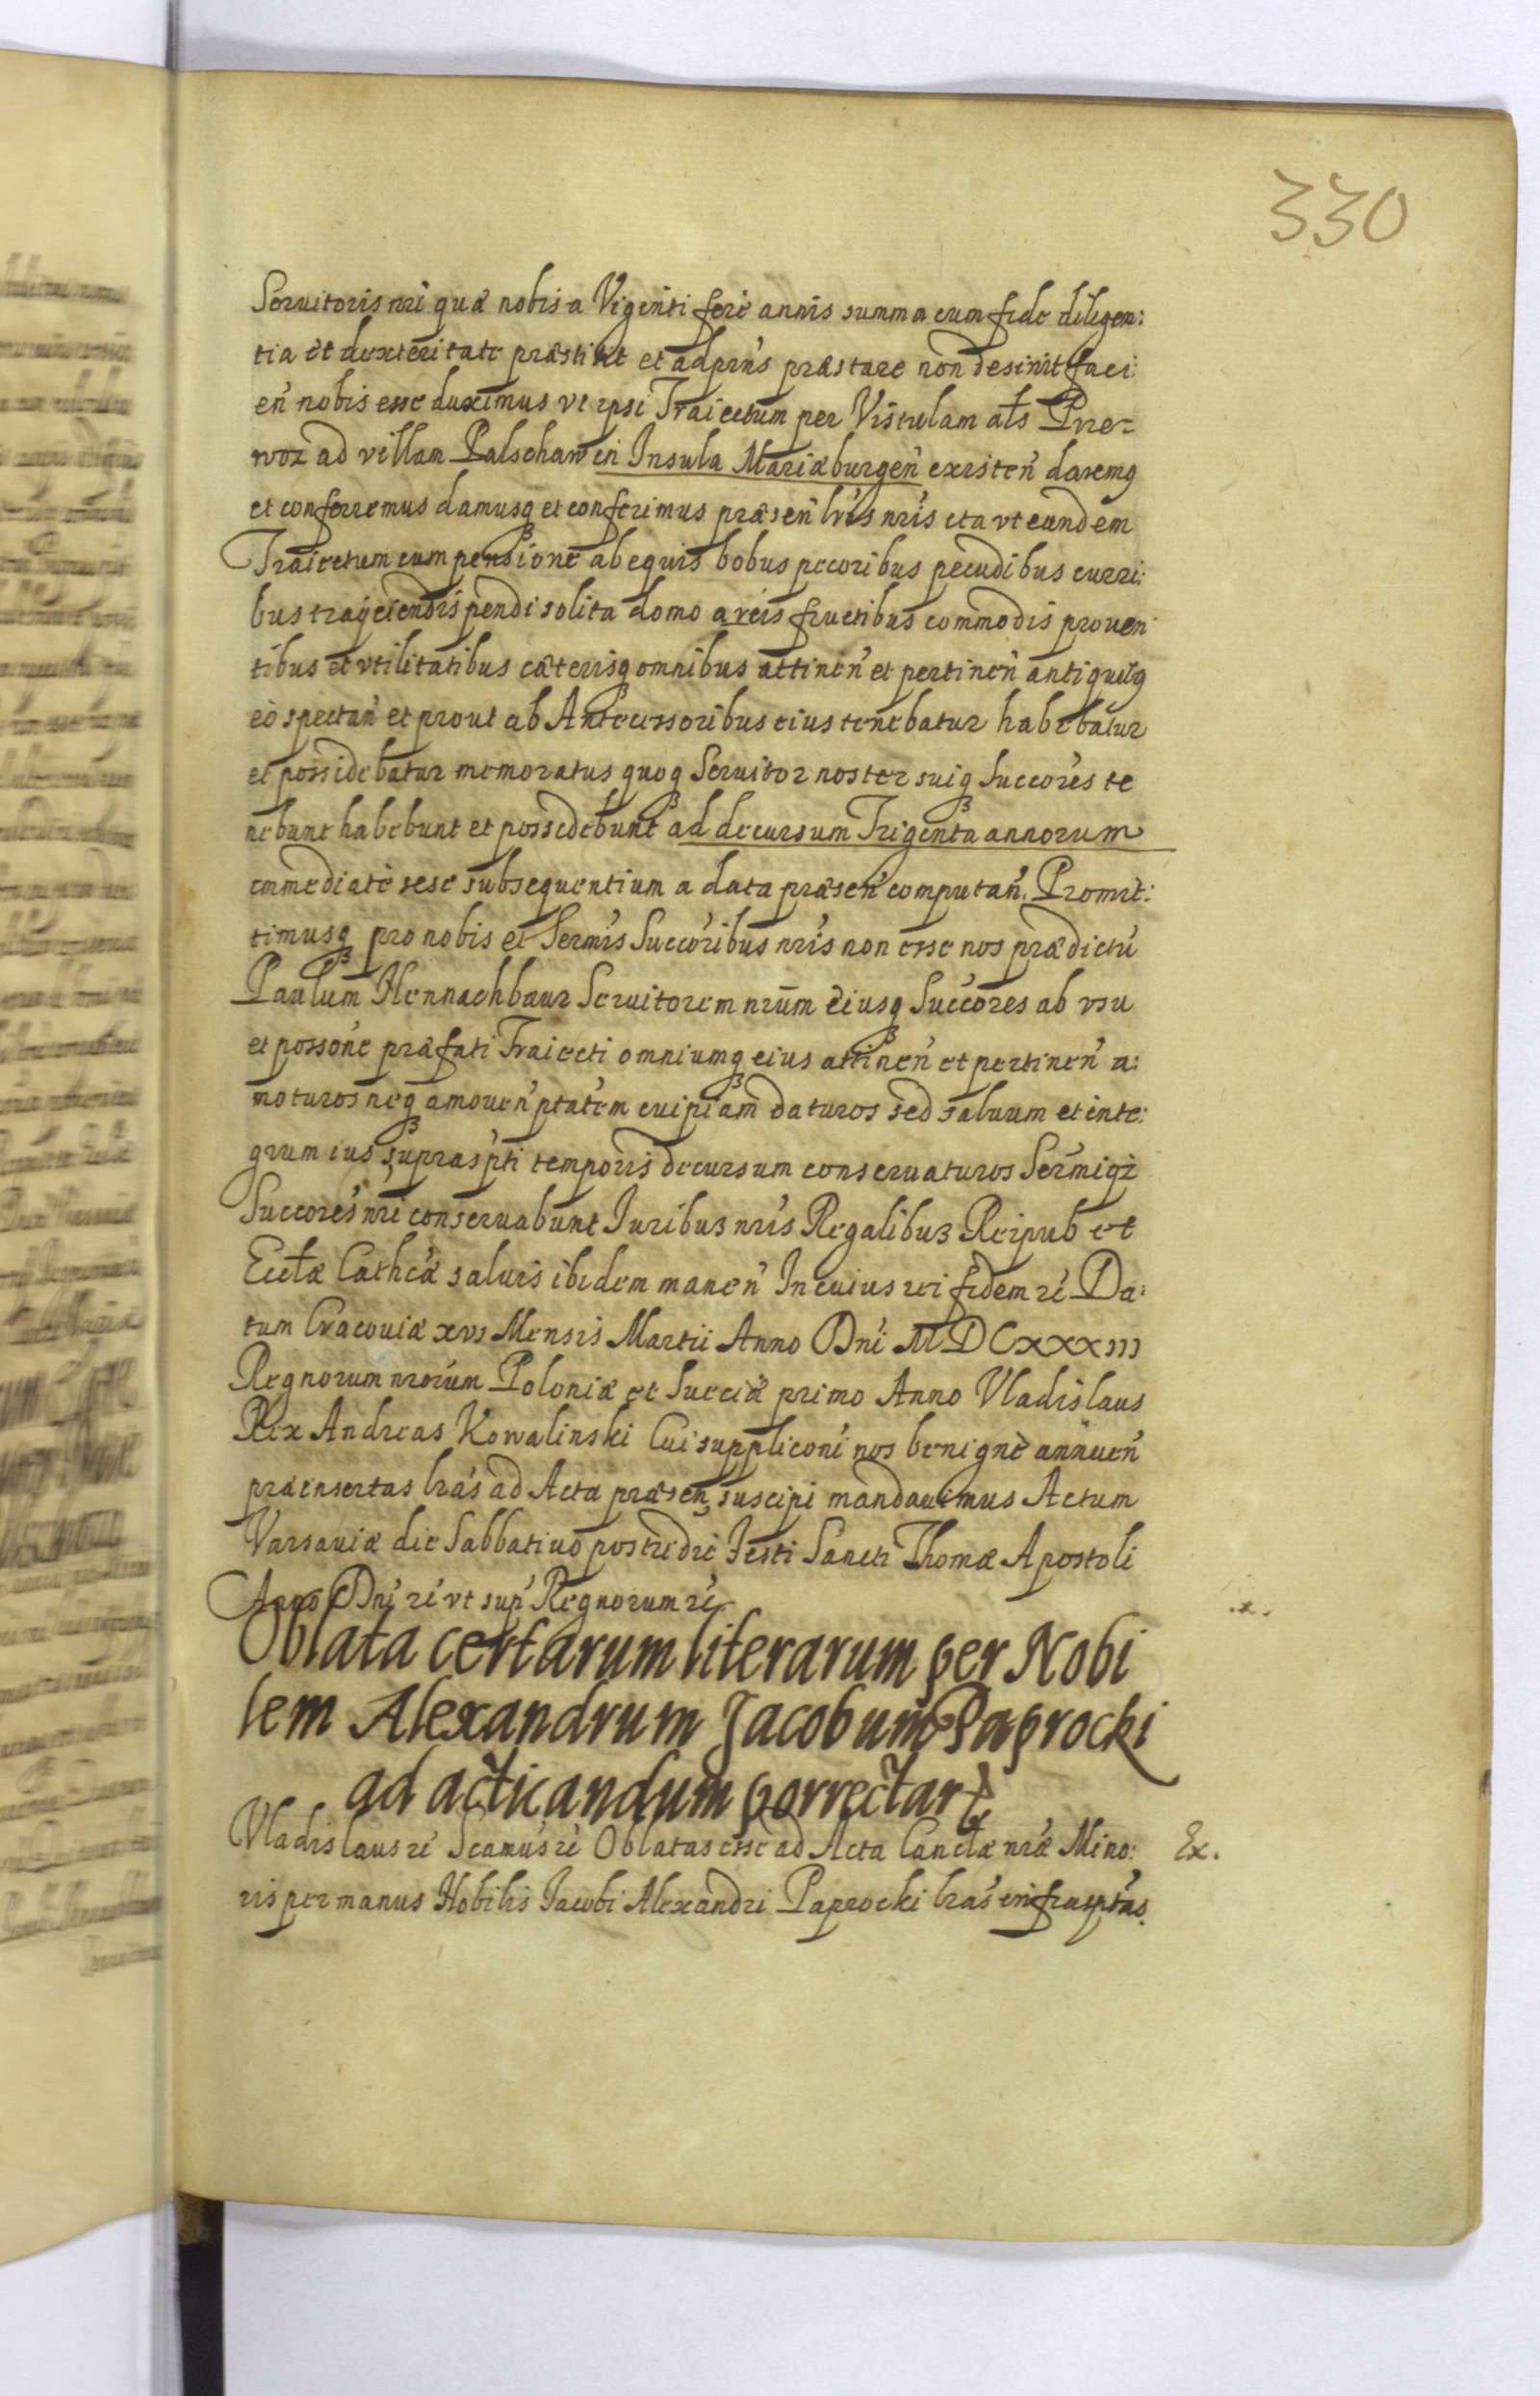 330
Seruitoris nri quæ nobis a Viginti ferè annis summa cum fide diligen:
tia et dexteritate præstitit et ad præns præstare non desinit faci:
en nobis esse duximus vt ipsi Traiectum per Vistulam als Prze-
woz ad villam Palschaw in Insula Mariæburgen existen daremq
et conferremus damusq et conferimus præsen lris nris ita vt eundem
Traiectum cum pensione ab equis bobus pecoribus pecudibus curri:
bus traijciendis pendi solita domo areis fructibus commodis prouen
tibus et vtilitatibus cæterisq omnibus attinen et pertinen antiquitq
eò spectan et prout ab Antecessoribus eius tenebatur habebatur
et possidebatur memoratus quoq Seruitor noster suiq Succores te
nebunt habebunt et possidebunt ad decursum Triginta annorum
immediatè sese subsequentium a data præsen computan. Promit:
timusq pro nobis et Sermis Succoribus nris non esse nos prædictu
Paulum Hennachbaur Seruitorem nrum eiusq Succores ab vsu
et possone præfati Traiecti omniumq eius attinen et pertinen a:
moturos neq amouen ptatem cuipiam daturos sed saluum et inte:
grum ius supraspti temporis decursum conseruaturos Sermiqz
Succores nri conseruabunt Iuribus nris Regalibus Reipub et
Eclæ Cathcæ saluis ibidem manen In cuius rei fidem rc Da:
tum Cracouiæ xvs Mensis Martii Anno Dni MDCxxxiii
Regnorum nrorum Poloniæ et Sueciæ primo Anno Vladislaus
Rex Andreas Kowalinski Cui suppliconi nos benignè annuen
præinsertas lras ad Acta præsen suscipi mandauimus Actum
Varsauiæ die Sabbatiuo postridie Festi Sancti Thomæ Apostoli
Anno Dni rc vt sup Regnorum rc
Oblata certarum literarum per Nobi
lem Alexandrum Jacobum Paprocki
ad acticandum porrectar
Vladislaus rc Scamus rc Oblatas esse ad Acta Canclæ nræ Mino: Ex.
ris per manus Nobilis Iacobi Alexandri Paprocki lras infrasptas